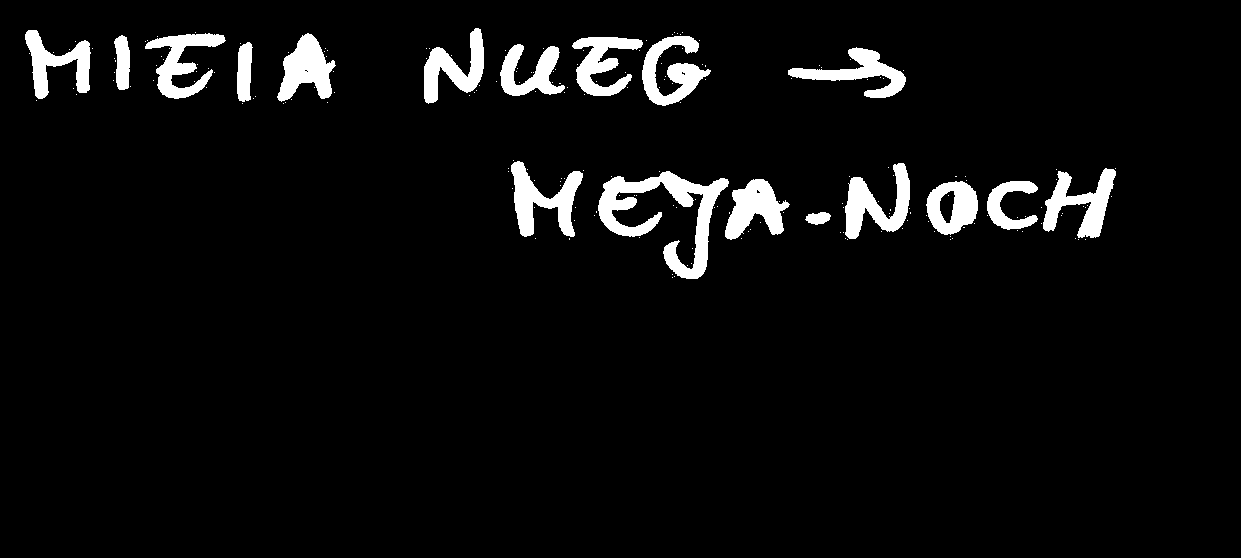 MIEIA NUEG →
MEJA-NOCH